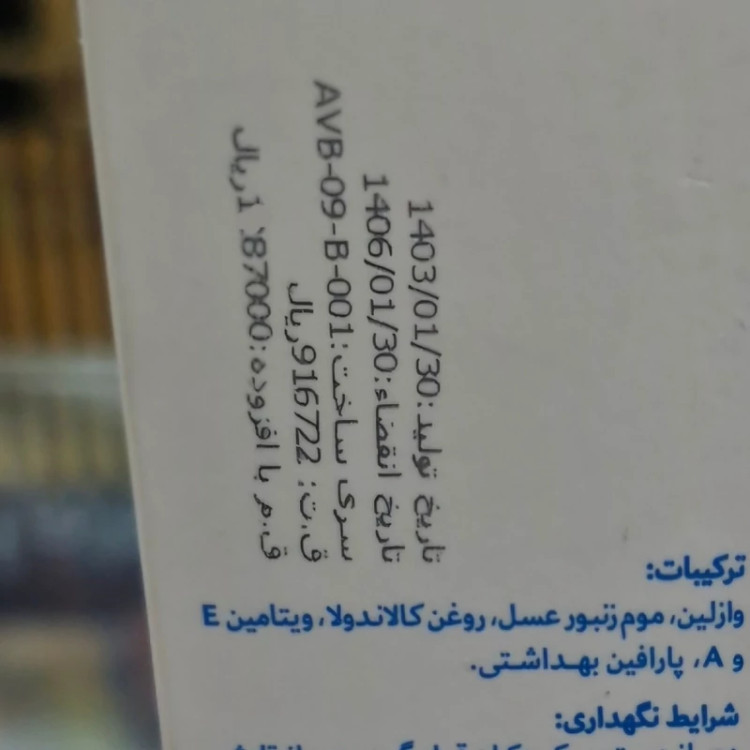 تاریخ تولید:1403/01/30
تاریخ انقضاء:1406/01/30
سری ساخت:AVB-09-B-001
ق.ت: 916722ریال
ق.م با افزوده:87000 1ریال
ترکیبات:
وازلین، موم زنبور عسل، روغن کالاندولا، ویتامین E
و A، پارافین بهداشتی.
شرایط نگهداری: